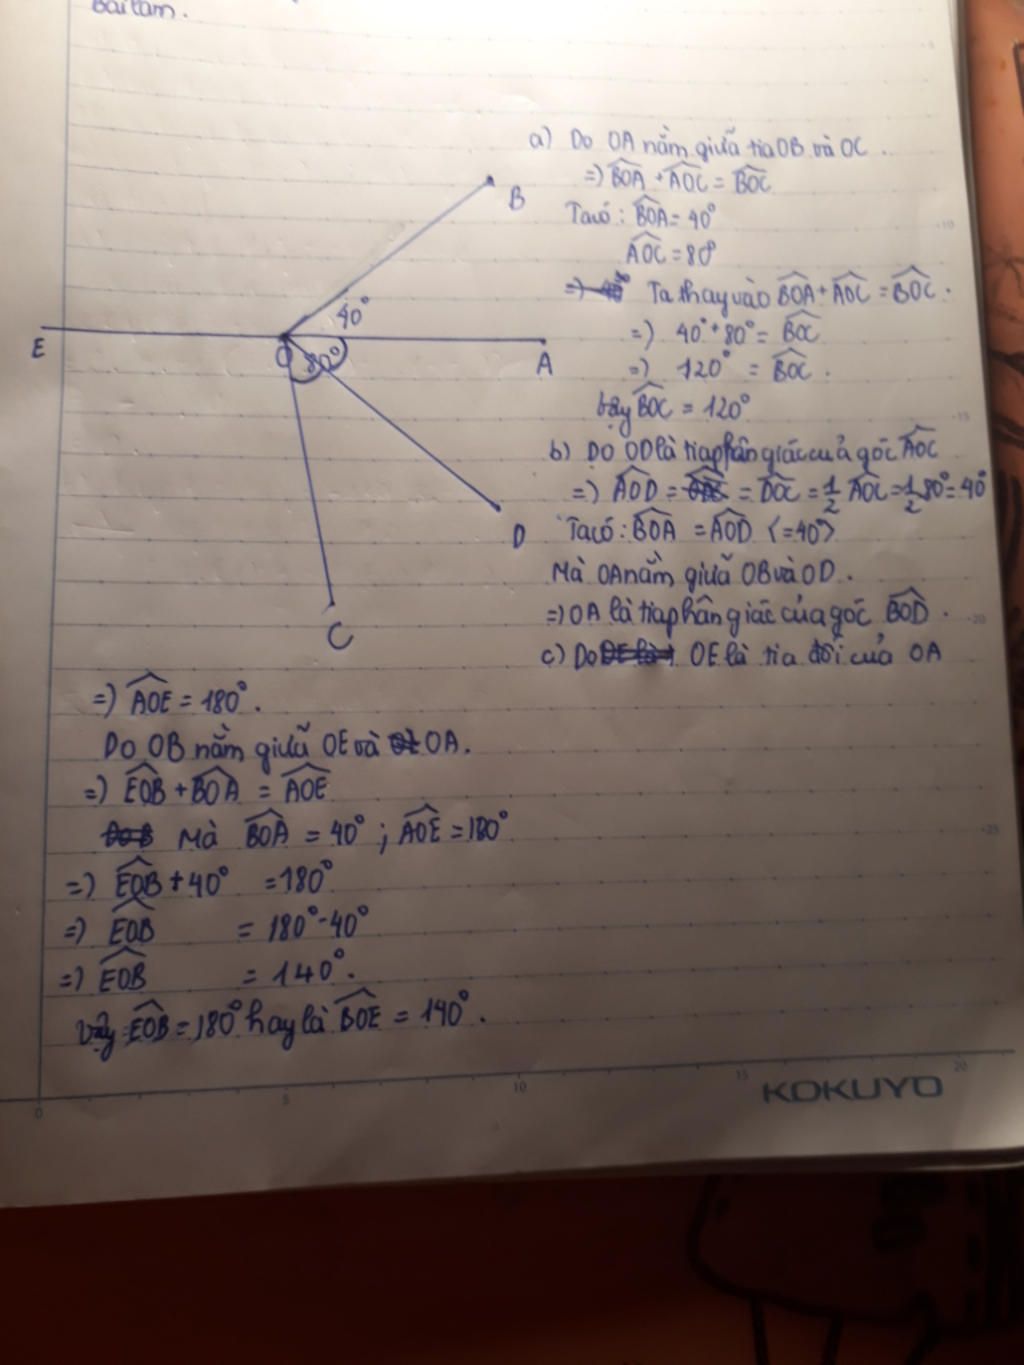 Bài làm.
B
40°
E
O
80°
A
D
C
a) Do OA nằm giữa tia OB và OC.
=) BOA + AOC = BOC
Ta có: BOA = 40°
AOC = 80°
=) Ta thay vào BOA + AOC = BOC.
=) 40° + 80° = BOC
=) 120° = BOC.
Vậy BOC = 120°
b) Do OD là tia phân giác của góc AOC
=) AOD = = DOC = 1/2 AOC = 1/2 80° = 40°
Ta có: BOA = AOD (=40°)
Mà OA nằm giữa OB và OD.
=) OA là tia phân giác của góc BOD.
c) Do OE là tia đối của OA
=) AOE = 180°.
Do OB nằm giữa OE và OA.
=) EOB + BOA = AOE
Mà BOA = 40°; AOE = 180°
=) EOB + 40° = 180°
=) EOB = 180° - 40°
=) EOB = 140°.
Vậy EOB = 180° hay là BOE = 140°.
0 5 10 15 20
KOKUYO